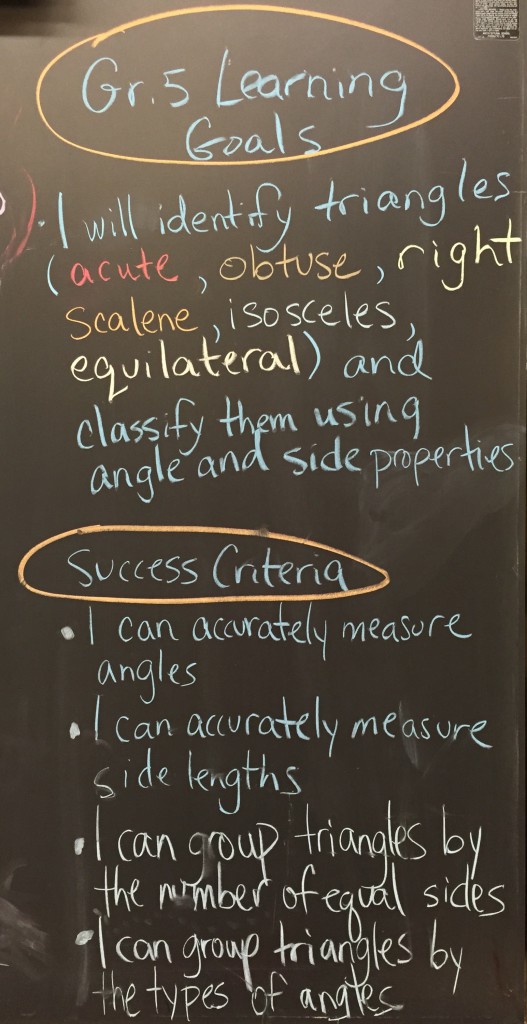 Gr.5 Learning
Goals
• I will identify triangles
(acute, obtuse, right
scalene, isosceles,
equilateral) and
classify them using
angle and side properties
Success Criteria
• I can accurately measure
angles
• I can accurately measure
side lengths
• I can group triangles by
the number of equal sides
• I can group triangles by
the types of angles